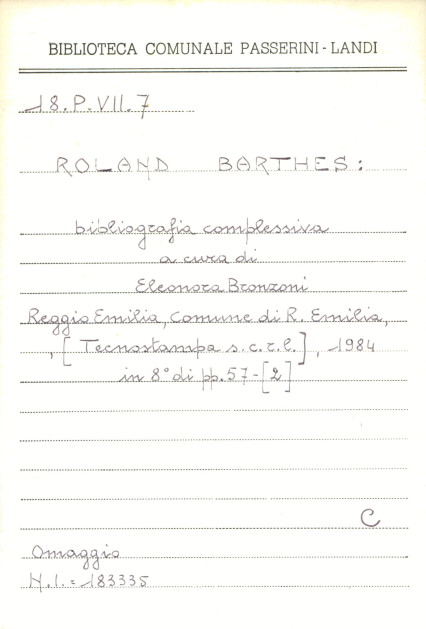 BIBLIOTECA COMUNALE PASSERINI-LANDI
18.P.VII.7
ROLAND BARTHES:
bibliografia complessiva
a cura di
Eleonora Bronzoni
Reggio Emilia, Comune di R. Emilia,
, [Tecnostampa s.c.r.l.], 1984
in 8° di pp. 57-[2]
C
Omaggio
N.I.= 183335